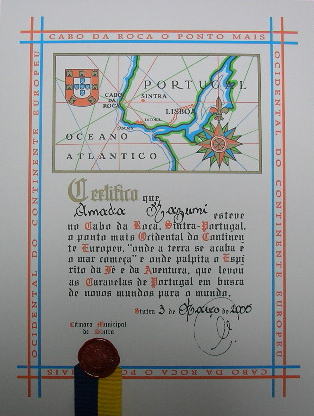 CABO DA ROCA O PONTO MAIS
OCIDENTAL DO CONTINENTE EUROPEU
PORTUGAL
SINTRA
CABO
DA
ROCA
LISBOA
OCEANO
ATLÂNTICO
Certifico que
esteve
no Cabo da Roca, Sintra-Portugal,
o ponto mais Ocidental do Continen
te Europeu, "onde a terra se acaba e
o mar começa" e onde palpita o Espí
rito da Fé e da Aventura, que levou
as Caravelas de Portugal em busca
de novos mundos para o mundo.
Sintra, 3 de Março de 2006
Câmara Municipal
de Sintra
OCIDENTAL DO CONTINENTE EUROPEU
CABO DA ROCA O PONTO MAIS